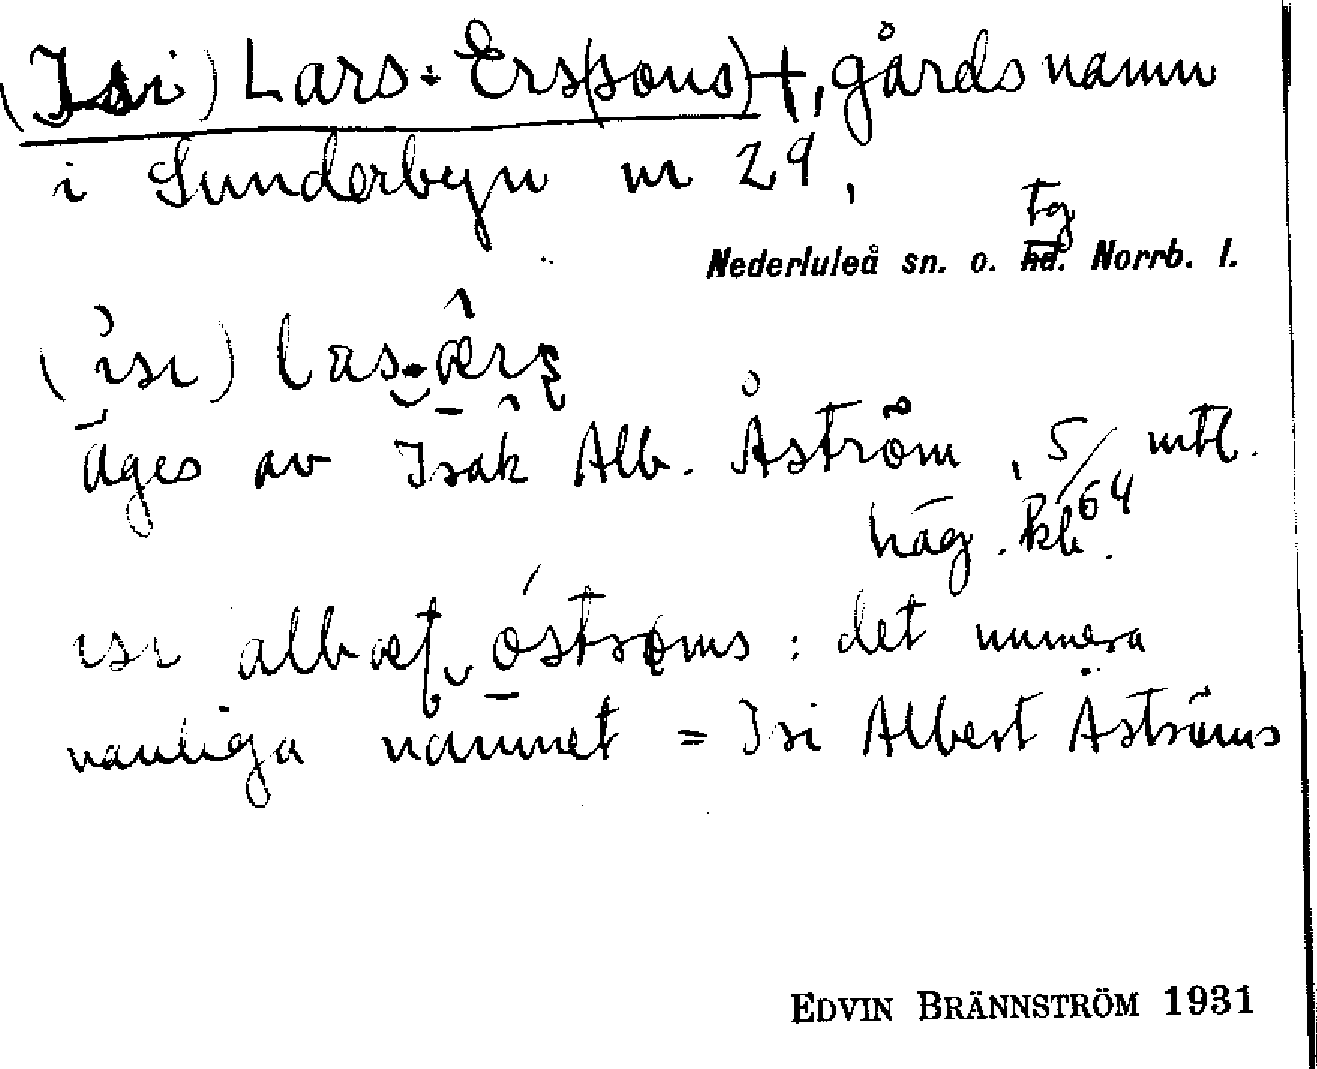 (Isi) Lars-Ers(sons) +, gårdsnamn
i Sunderbyn nr 29,
tg
Nederluleå sn. o. hd. Norrb. l.
(ìsɩ) las-æ̂rş
äges av Isak Alb. Åström, 5/64 mtl.
häg. kh.
ɩsɩ albæt óstrøms : det numera
vanliga namnet = Isi Albert Åströms
EDVIN BRÄNNSTRÖM 1931